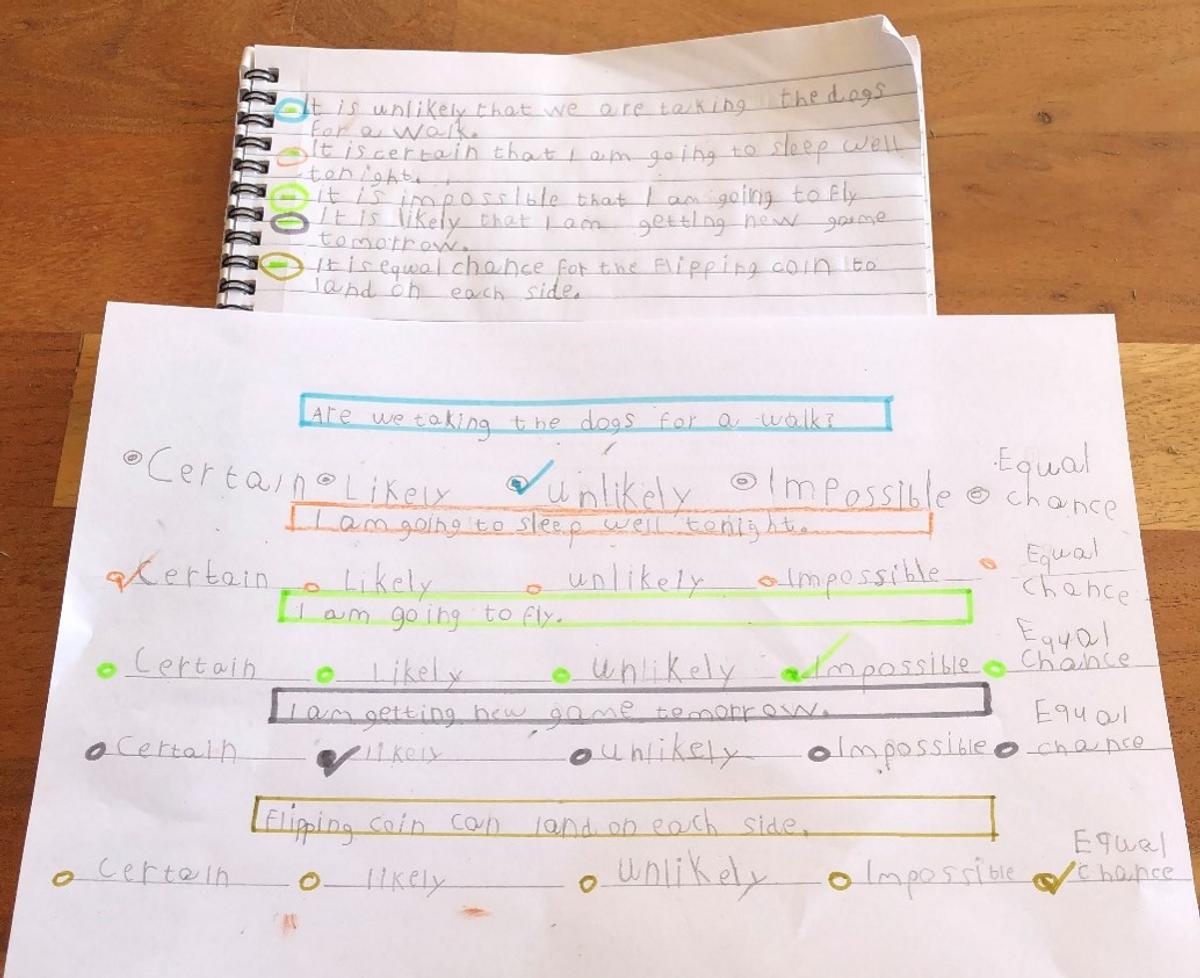 It is unlikely that we are taking the dogs
for a walk.
It is certain that I am going to sleep well
tonight.
It is impossible that I am going to fly
It is likely that I am getting new game
tomorrow.
It is equal chance for the flipping coin to
land on each side.
Are we taking the dogs for a walk?
Certain Likely unlikely Impossible Equal chance
I am going to sleep well tonight.
Certain Likely unlikely Impossible Equal chance
I am going to fly.
Certain Likely Unlikely Impossible Equal Chance
I am getting new game tomorrow.
Certain likely unlikely Impossible Equal chance
Flipping coin can land on each side.
Certain likely Unlikely Impossible Equal chance